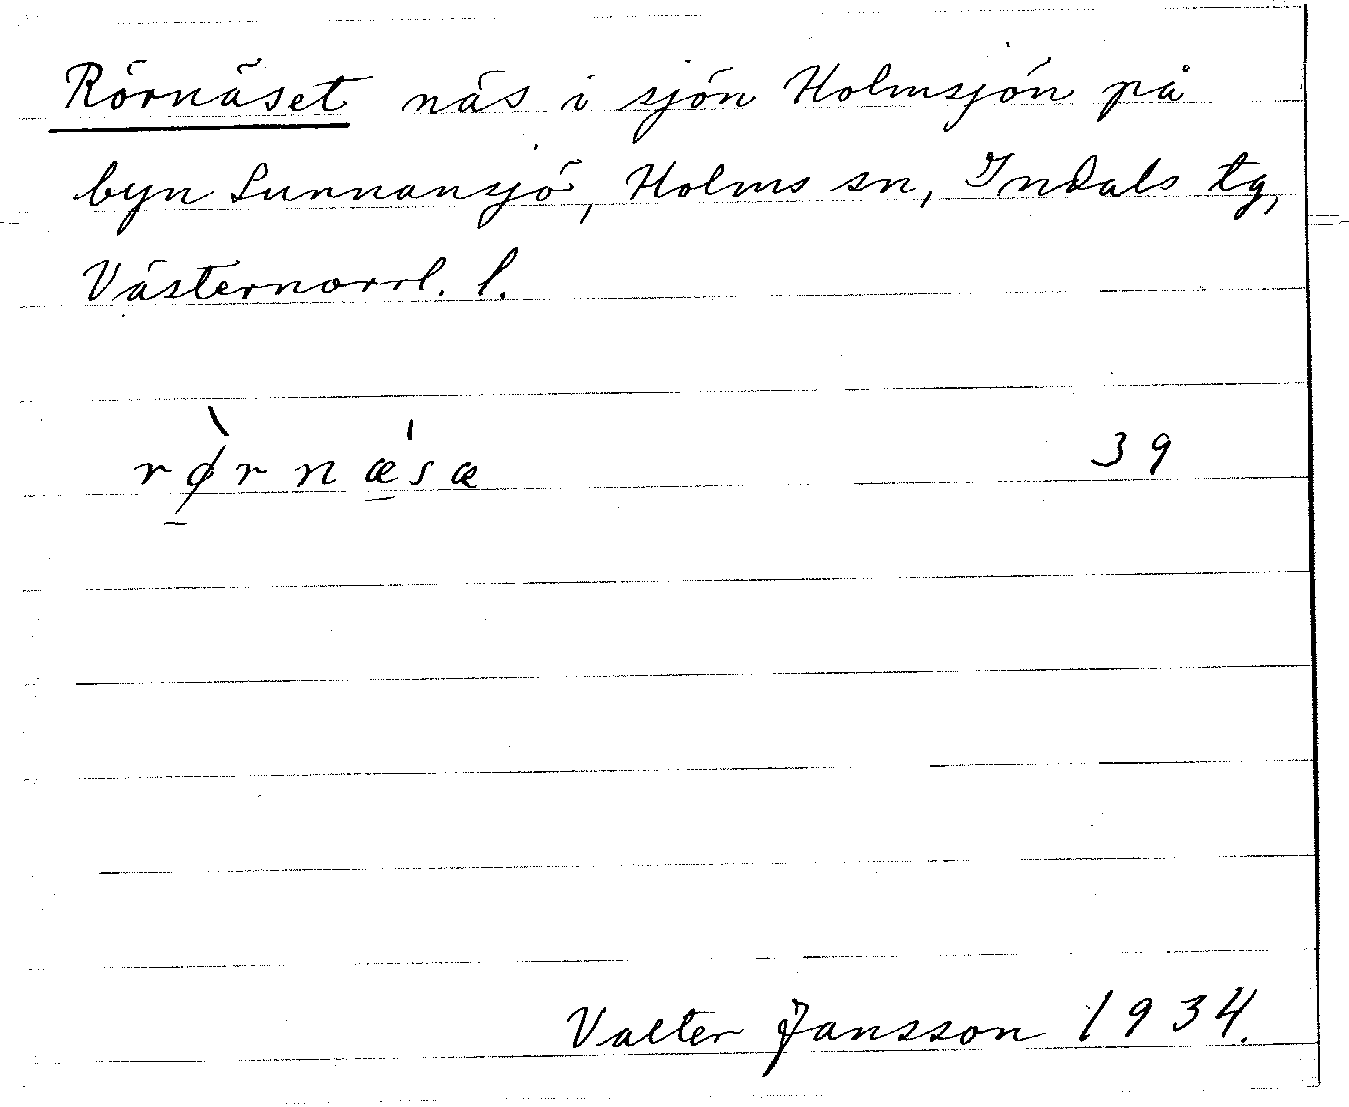 Rörnäset näs i sjön Holmsjön på
byn Sunnansjö, Holms sn, Indals tg,
Västernorrl. l.
rø̀rnæ´sæ 39
Valter Jansson 1934.